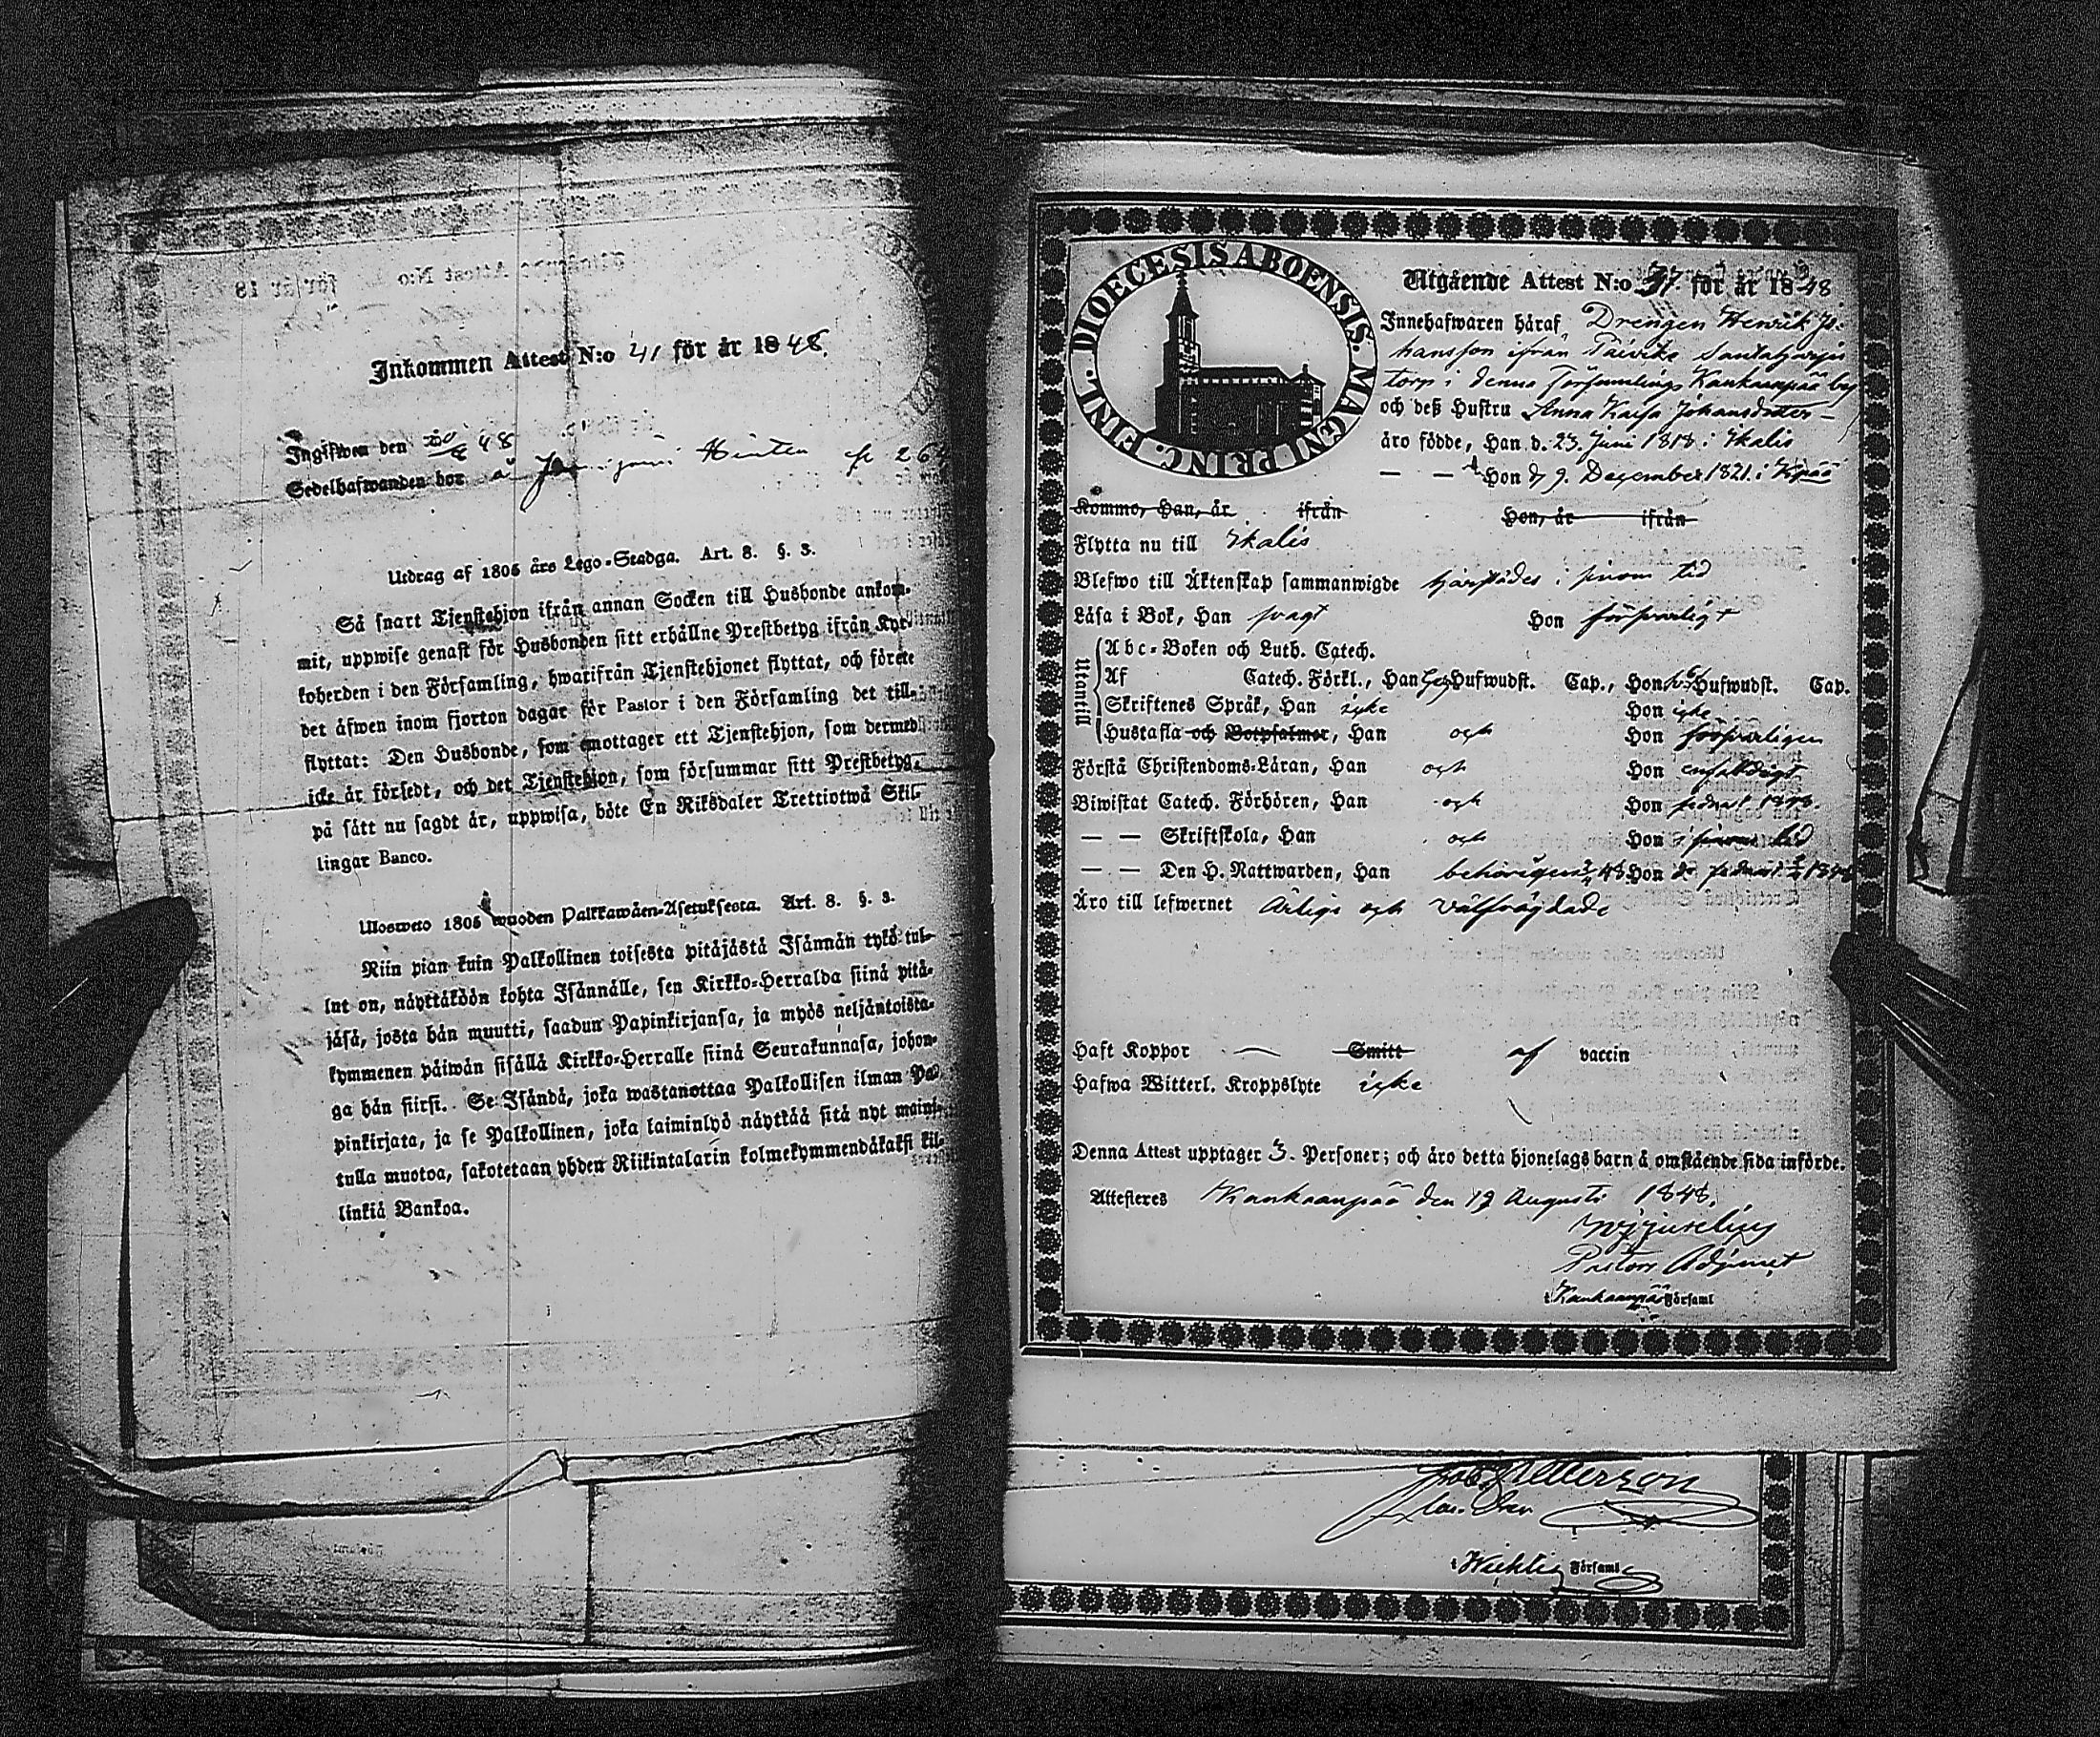 Inkommen Attest N:o 41 för år 1848.
Ingifwen den 20/8 48
Sedelhafwanden bor
Utdrag af 1805 års Lego-Stadga. Art. 8. §. 3.
Så snart Tjenstehjon ifrån annan Socken till Husbonde ankom-
mit, uppwise genast för Husbonden sitt erhållne Prestbetyg ifrån Kyr-
koherden i den Församling, hwarifrån Tjenstehjonet flyttat, och förete
det äfwen inom fjorton dagar för Pastor i den Församling det till-
flyttat: Den Husbonde, som emottager ett Tjenstehjon, som dermed
icke är försedt, och det Tjenstehjon, som försummar sitt Prestbetyg,
på sätt nu sagdt är, uppwisa, böte En Riksdaler Trettiotwå Skil-
lingar Banco.
Ulosweto 1805 wuoden Palkkawäen-Asetuksesta. Art. 8. §. 3.
Niin pian kuin Palkollinen toisesta pitäjästä Isännän tykö tul-
lut on, näyttäköön kohta Isännälle, sen Kirkko-Herralda siinä pitä-
jäsä, josta hän muutti, saadun Papinkirjansa, ja myös neljäntoista-
kymmenen päiwän sisällä Kirkko-Herralle siinä Seurakunnasa, johon-
ga hän siirsi. Se Isändä, joka wastanottaa Palkollisen ilman Pa-
pinkirjata, ja se Palkollinen, joka laiminlyö näyttää sitä nyt maini-
tulla muotoa, sakotetaan yhden Riikintalarin kolmekymmendäkaksi kil-
linkiä Bankoa.
DIOECESIS ABOENSIS. MAGNI PRINC. FINL.
Utgående Attest N:o 37 för år 1848
Innehafwaren häraf, Drengen Henrik Jo-
hansson ifrån Päivike Santaharju
torp i denna Församlings Kankaanpää by
och deß Hustru Anna Kaisa Johansdotter –
äro födde, Han d. 23. Juni 1818 i Ikalis
— — Hon d 9. December 1821. i Kpää
Kommo, Han, år ifrån Hon, år ifrån
Flytta nu till Ikalis
Blefwo till Äktenskap sammanwigde härstädes i sinom tid
Läsa i Bok, Han swagt Hon förswarligt
Utantill
Abc-Boken och Luth. Catech.
Af Catech. Förkl., Han Hufwudst. Cap., Hon Hufwudst. Cap.
Skriftenes Språk, Han icke Hon icke
Hustafla och Botpsalmer, Han och Hon förswarligen
Förstå Christendoms-Läran, Han och Hon enfaldigt
Biwistat Catech. Förhören, Han och Hon sednast 1848.
— — Skriftskola, Han och Hon i sinom tid
— — Den H. Nattwarden, Han behörigen Hon sednast 1848
Äro till lefwernet Ärlige och välfrägdade
Haft Koppor — Smitt af vaccin
Hafwa Witterl. Kroppslyte icke
Denna Attest upptager 3. Personer; och äro detta hjonelags barn å omstående sida införde.
Attesteres Kankaanpää den 19 Augusti 1848.
Pastors Adjunct
i Kankaanpää Församl
i Församl